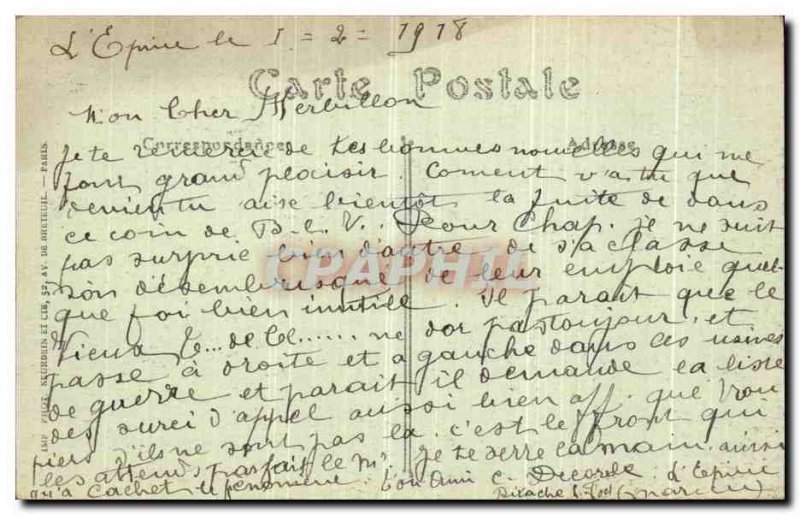 L'Epine le 1 = 2 = 1918
Carte Postale
Mon Cher Merbillon
Correspondance Adresse
je te remercie de tes bonnes nouvelles qui me
font grand plaisir. Coment vas tu que
devientu aise bientôt la fuite de dans
ce coin de B.L.V. Pour Chap. je ne suit
pas surprie bien d'autre de sa classe
son désembusqué de leur emploie quel
que foi bien inutile. Il parait que le
Vieux T... de Cl...... ne dor pas toujour, et
passe à droite et a gauche dans les usines
de guerre et parait il demande la liste
des surci d'appel aussi bien aff. que
s'ils ne sont pas la c'est le front qui
les attend, parfait le je te serre la main. ainsi
qu'a Cachet le penomene. Ton Ami C. Decorde d'Epine
(Marne)
CPAPHIL
IMP. PHOT. NEURDEIN ET CIE, 52, AV. DE BRETEUIL. — PARIS.